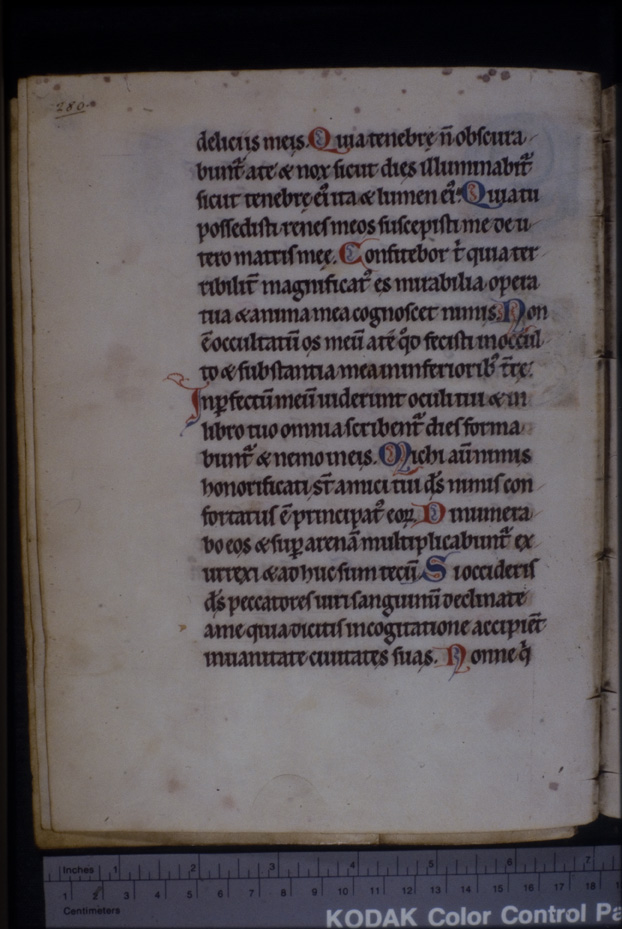 280.
deliciis meis. Quia tenebrę ñ obscura
bunt᷑ a te & nox sicut dies illuminabit᷑
sicut tenebrę ei᷑ ita & lumen ei᷑. Quia tu
possedisti renes meos suscepisti me de u
tero matris meę. Confitebor t̄ quia ter
ribilit᷑ magnificat᷑ es mirabilia opera
tua & anima mea cognoscet nimis. Non
ē occultatū os meū a te qd̄ fecisti in occul
to & substantia mea in inferiorib᷑ t̄re.
Inp̄fectū meū uiderunt oculi tui & in
libro tuo omnia scribent᷑ dies forma
bunt᷑ & nemo in eis. Michi aū nimis
honorificati st̄ amici tui ds̄ nimis con
fortatus ē principat᷑ eoꝝ. Dinumera
bo eos & sup̄ arenā multiplicabunt᷑ ex
urrexi & adhuc sum tecū. Si occideris
ds̄ peccatores uiri sanguinū declinate
a me quia dicitis in cogitatione accipiēt
in uanitate ciuitates suas. Nonne q̄
Inches 1 2 3 4 5 6 7
1 2 3 4 5 6 7 8 9 10 11 12 13 14 15 16 17 18
Centimeters
KODAK Color Control Pa